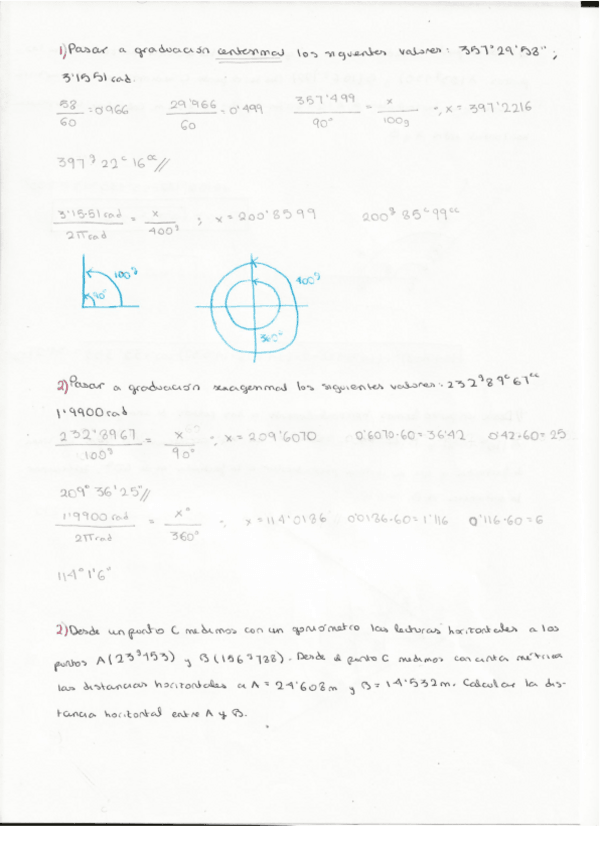 1) Pasar a graduación centesimal los siguientes valores: 357° 29' 58'' ;
3'1551 rad.
58/60 = 0'966 29'966/60 = 0'499 357'499/90° = x/100g ; x = 397'2216
397g 22c 16cc //
3'1551 rad/2π rad = x/400g ; x = 200'8599 200g 85c 99cc
100g 400g
90° 360°
2) Pasar a graduación sexagesimal los siguientes valores: 232g 89c 67cc
1'9900 rad
232'8967/100g = x/90° ; x = 209'6070 0'6070·60 = 36'42 0'42·60 = 25
209° 36' 25'' //
1'9900 rad/2π rad = x°/360° ; x = 114'0186 0'0186·60 = 1'116 0'116·60 = 6
114° 1' 6''
2) Desde un punto C medimos con un goniómetro las lecturas horizontales a los
puntos A (23g 153) y B (156g 728). Desde el punto C medimos con cinta métrica
las distancias horizontales a A = 24'608m y B = 14'532m. Calcular la dis-
tancia horizontal entre A y B.